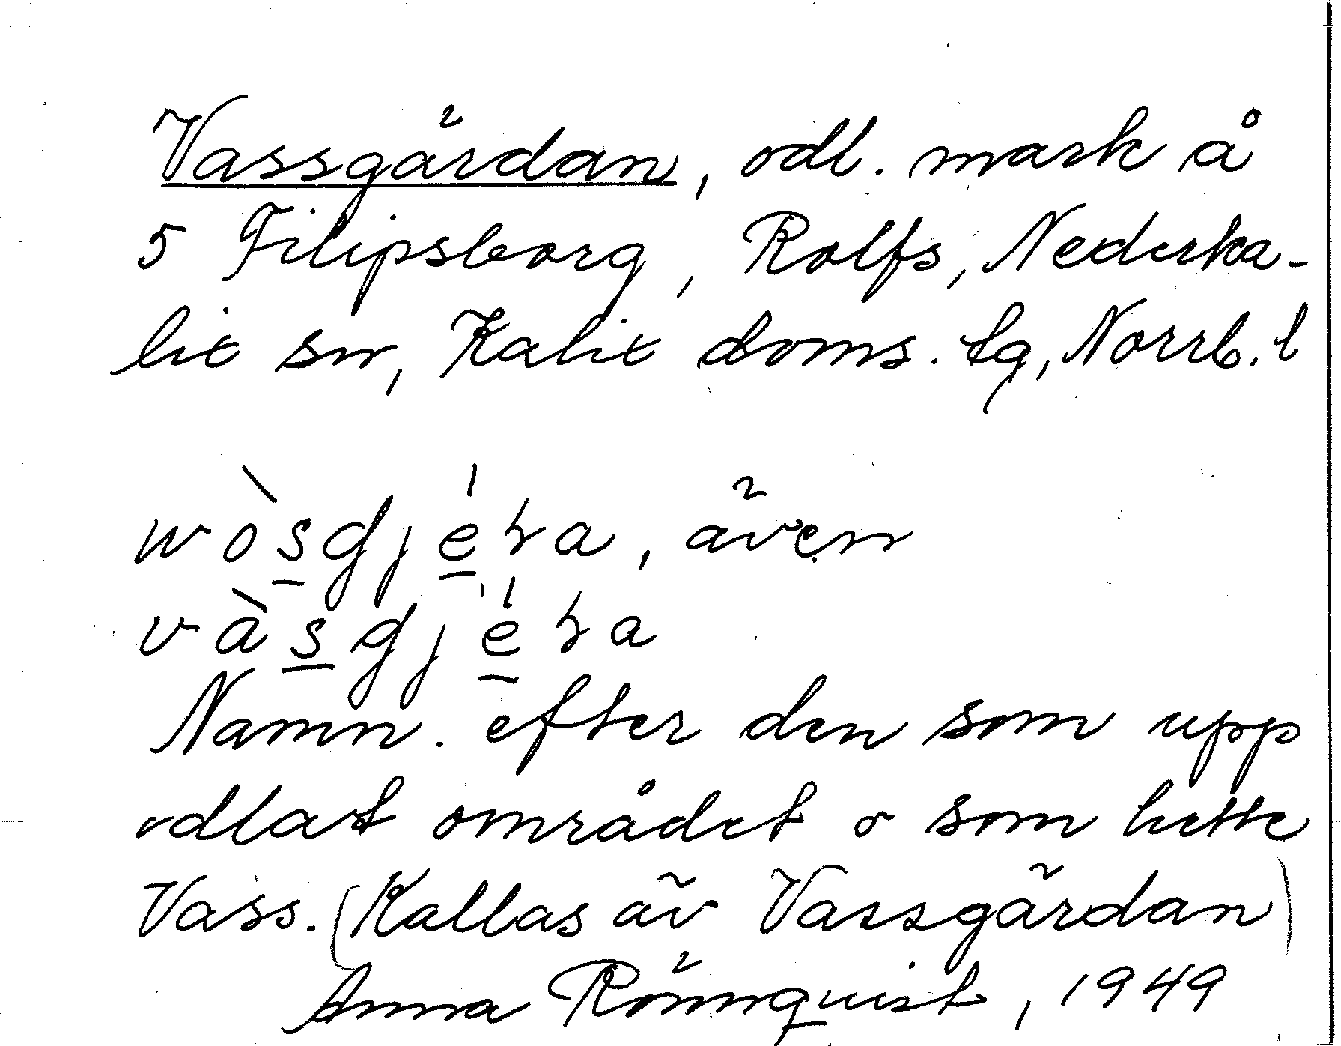 Vassgärdan, odl. mark å
5 Filipsborg, Rolfs, Nederka-
lix sn, Kalix doms. lg, Norrb. l
wòsgjéra, även
vàsgjéra
Namn. efter den som upp
odlat området o som hette
Vass. (Kallas äv Vassgärdan)
Anna Rönnquist, 1949